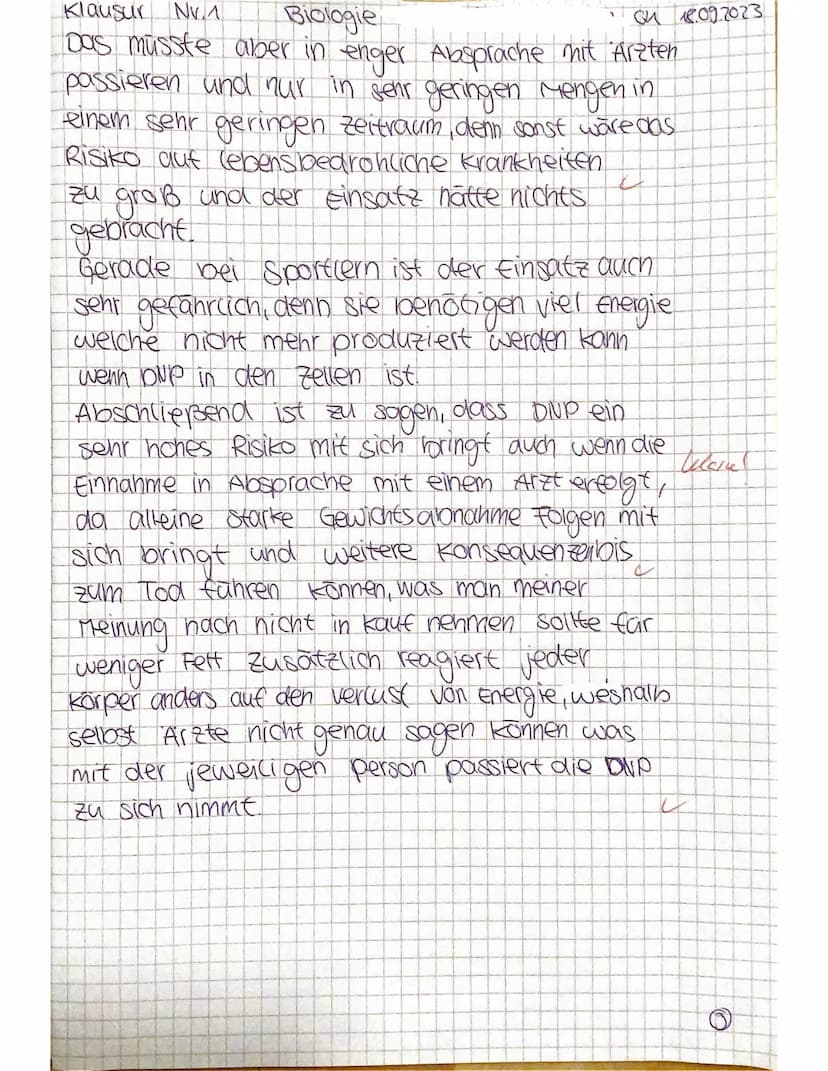 Klausur Nr.1 Biologie 18.09.2023
Das müsste aber in enger Absprache mit Ärzten
passieren und nur in sehr geringen Mengen in
einem sehr geringen Zeitraum, denn sonst wäre das
Risiko auf lebensbedrohliche Krankheiten
zu groß und der Einsatz hätte nichts
gebracht.
Gerade bei Sportlern ist der Einsatz auch
sehr gefährlich, denn sie benötigen viel Energie
welche nicht mehr produziert werden kann
wenn DNP in den Zellen ist.
Abschließend ist zu sagen, dass DNP ein
sehr hohes Risiko mit sich bringt auch wenn die
Einnahme in Absprache mit einem Arzt erfolgt,
da alleine starke Gewichtsabnahme Folgen mit
sich bringt und weitere Konsequenzen bis
zum Tod führen können, was man meiner
Meinung nach nicht in kauf nehmen sollte für
weniger Fett. Zusätzlich reagiert jeder
Körper anders auf den verlust von Energie, weshalb
selbst Ärzte nicht genau sagen können was
mit der jeweiligen Person passiert die DNP
zu sich nimmt.